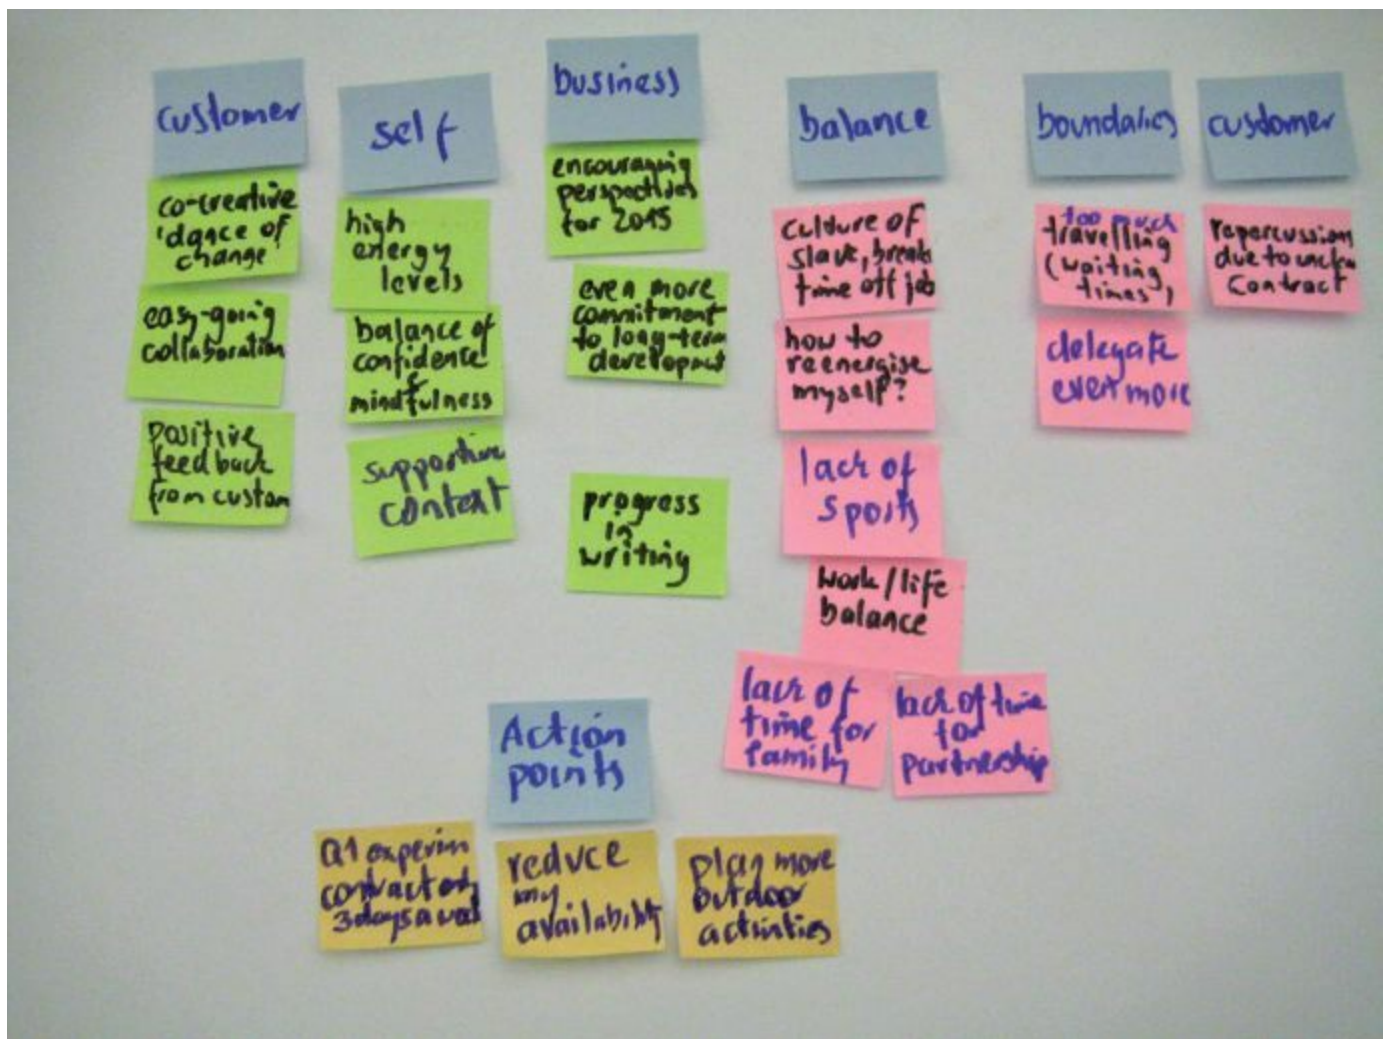 customer
co-creative
'dance of
change'
easy-going
collaboration
positive
feedback
from custom
self
high
energy
levels
balance of
confidence
&
mindfulness
supportive
context
business
encouraging
perspectives
for 2015
even more
commitment
to long-term
developmet
progress
in
writing
balance
culture of
slave, break
time off job
how to
reenergise
myself?
lack of
sports
work/life
balance
lack of
time for
family
lack of time
for
partnership
boundaries
too much
travelling
(waiting
times)
delegate
even more
customer
repercussion
due to unclea
contract
Action
points
Q1 experim
contract on
3 days a
reduce
my
availability
plan more
outdoor
activities